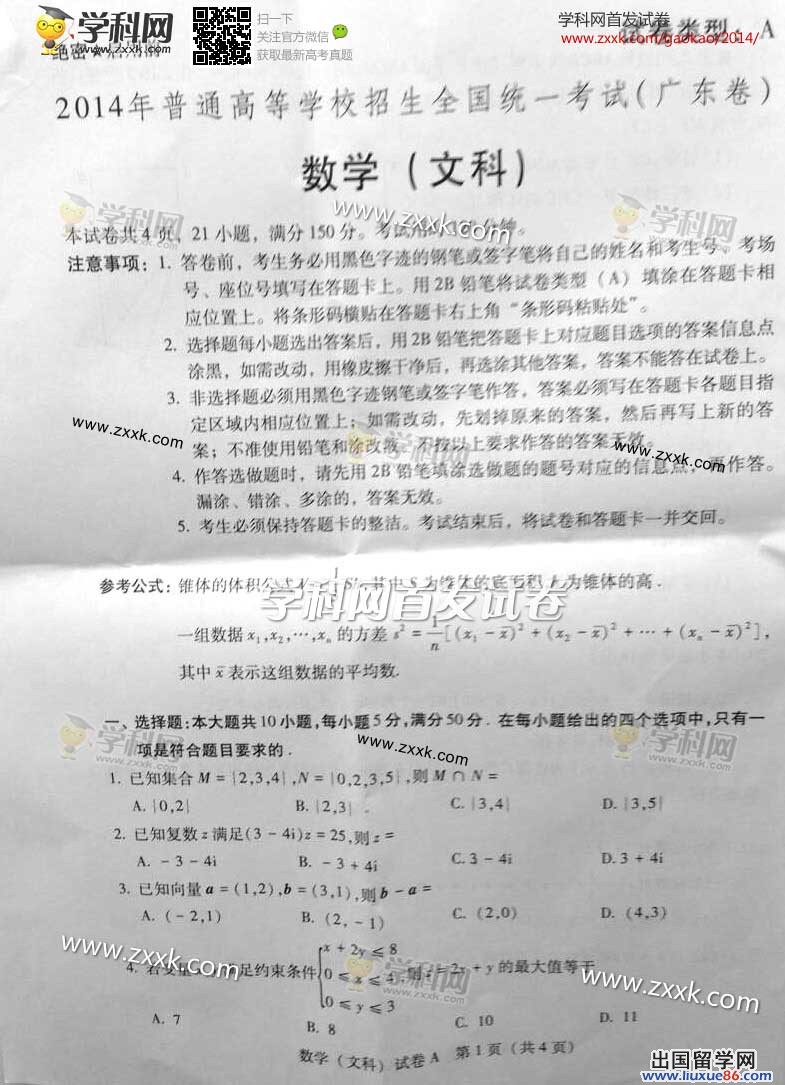 学科网
www.zxxk.com
扫一下
关注官方微信
获取最新高考真题
学科网首发试卷
www.zxxk.com/gaokao/2014/
试卷类型：A
2014年普通高等学校招生全国统一考试(广东卷)
数学(文科)
本试卷共4页，21小题，满分150分。考试
注意事项：1. 答卷前，考生务必用黑色字迹的钢笔或签字笔将自己的姓名和考生号、考场
号、座位号填写在答题卡上。用2B铅笔将试卷类型（A）填涂在答题卡相
应位置上。将条形码横贴在答题卡右上角“条形码粘贴处”。
2. 选择题每小题选出答案后，用2B铅笔把答题卡上对应题目选项的答案信息点
涂黑，如需改动，用橡皮擦干净后，再选涂其他答案，答案不能答在试卷上。
3. 非选择题必须用黑色字迹钢笔或签字笔作答，答案必须写在答题卡各题目指
定区域内相应位置上；如需改动，先划掉原来的答案，然后再写上新的答
案；不准使用铅笔和涂改液。不按以上要求作答的答案无效。
4. 作答选做题时，请先用2B铅笔填涂选做题的题号对应的信息点，再作答。
漏涂、错涂、多涂的，答案无效。
5. 考生必须保持答题卡的整洁。考试结束后，将试卷和答题卡一并交回。
参考公式：锥体的体积公式 其中S为锥体的底面积 为锥体的高.
学科网首发试卷
一组数据 x₁,x₂,…,xₙ 的方差 s² = 1/n[(x₁ − x̄)² + (x₂ − x̄)² + … + (xₙ − x̄)²],
其中 x̄ 表示这组数据的平均数.
一、选择题:本大题共10小题,每小题5分,满分50分. 在每小题给出的四个选项中,只有一
项是符合题目要求的.
1. 已知集合 M = {2,3,4},N = {0,2,3,5},则 M ∩ N =
A. {0,2} B. {2,3} C. {3,4} D. {3,5}
2. 已知复数 z 满足(3 − 4i)z = 25,则 z =
A. − 3 − 4i B. − 3 + 4i C. 3 − 4i D. 3 + 4i
3. 已知向量 a = (1,2),b = (3,1),则 b − a =
A. (− 2,1) B. (2, − 1) C. (2,0) D. (4,3)
4. 若变量 足约束条件 { x + 2y ≤ 8
0 ≤ x ≤ 4 ,则 z = 2x + y 的最大值等于
0 ≤ y ≤ 3
A. 7 B. 8 C. 10 D. 11
数学(文科)试卷A 第1页(共4页)
出国留学网
www.liuxue86.com